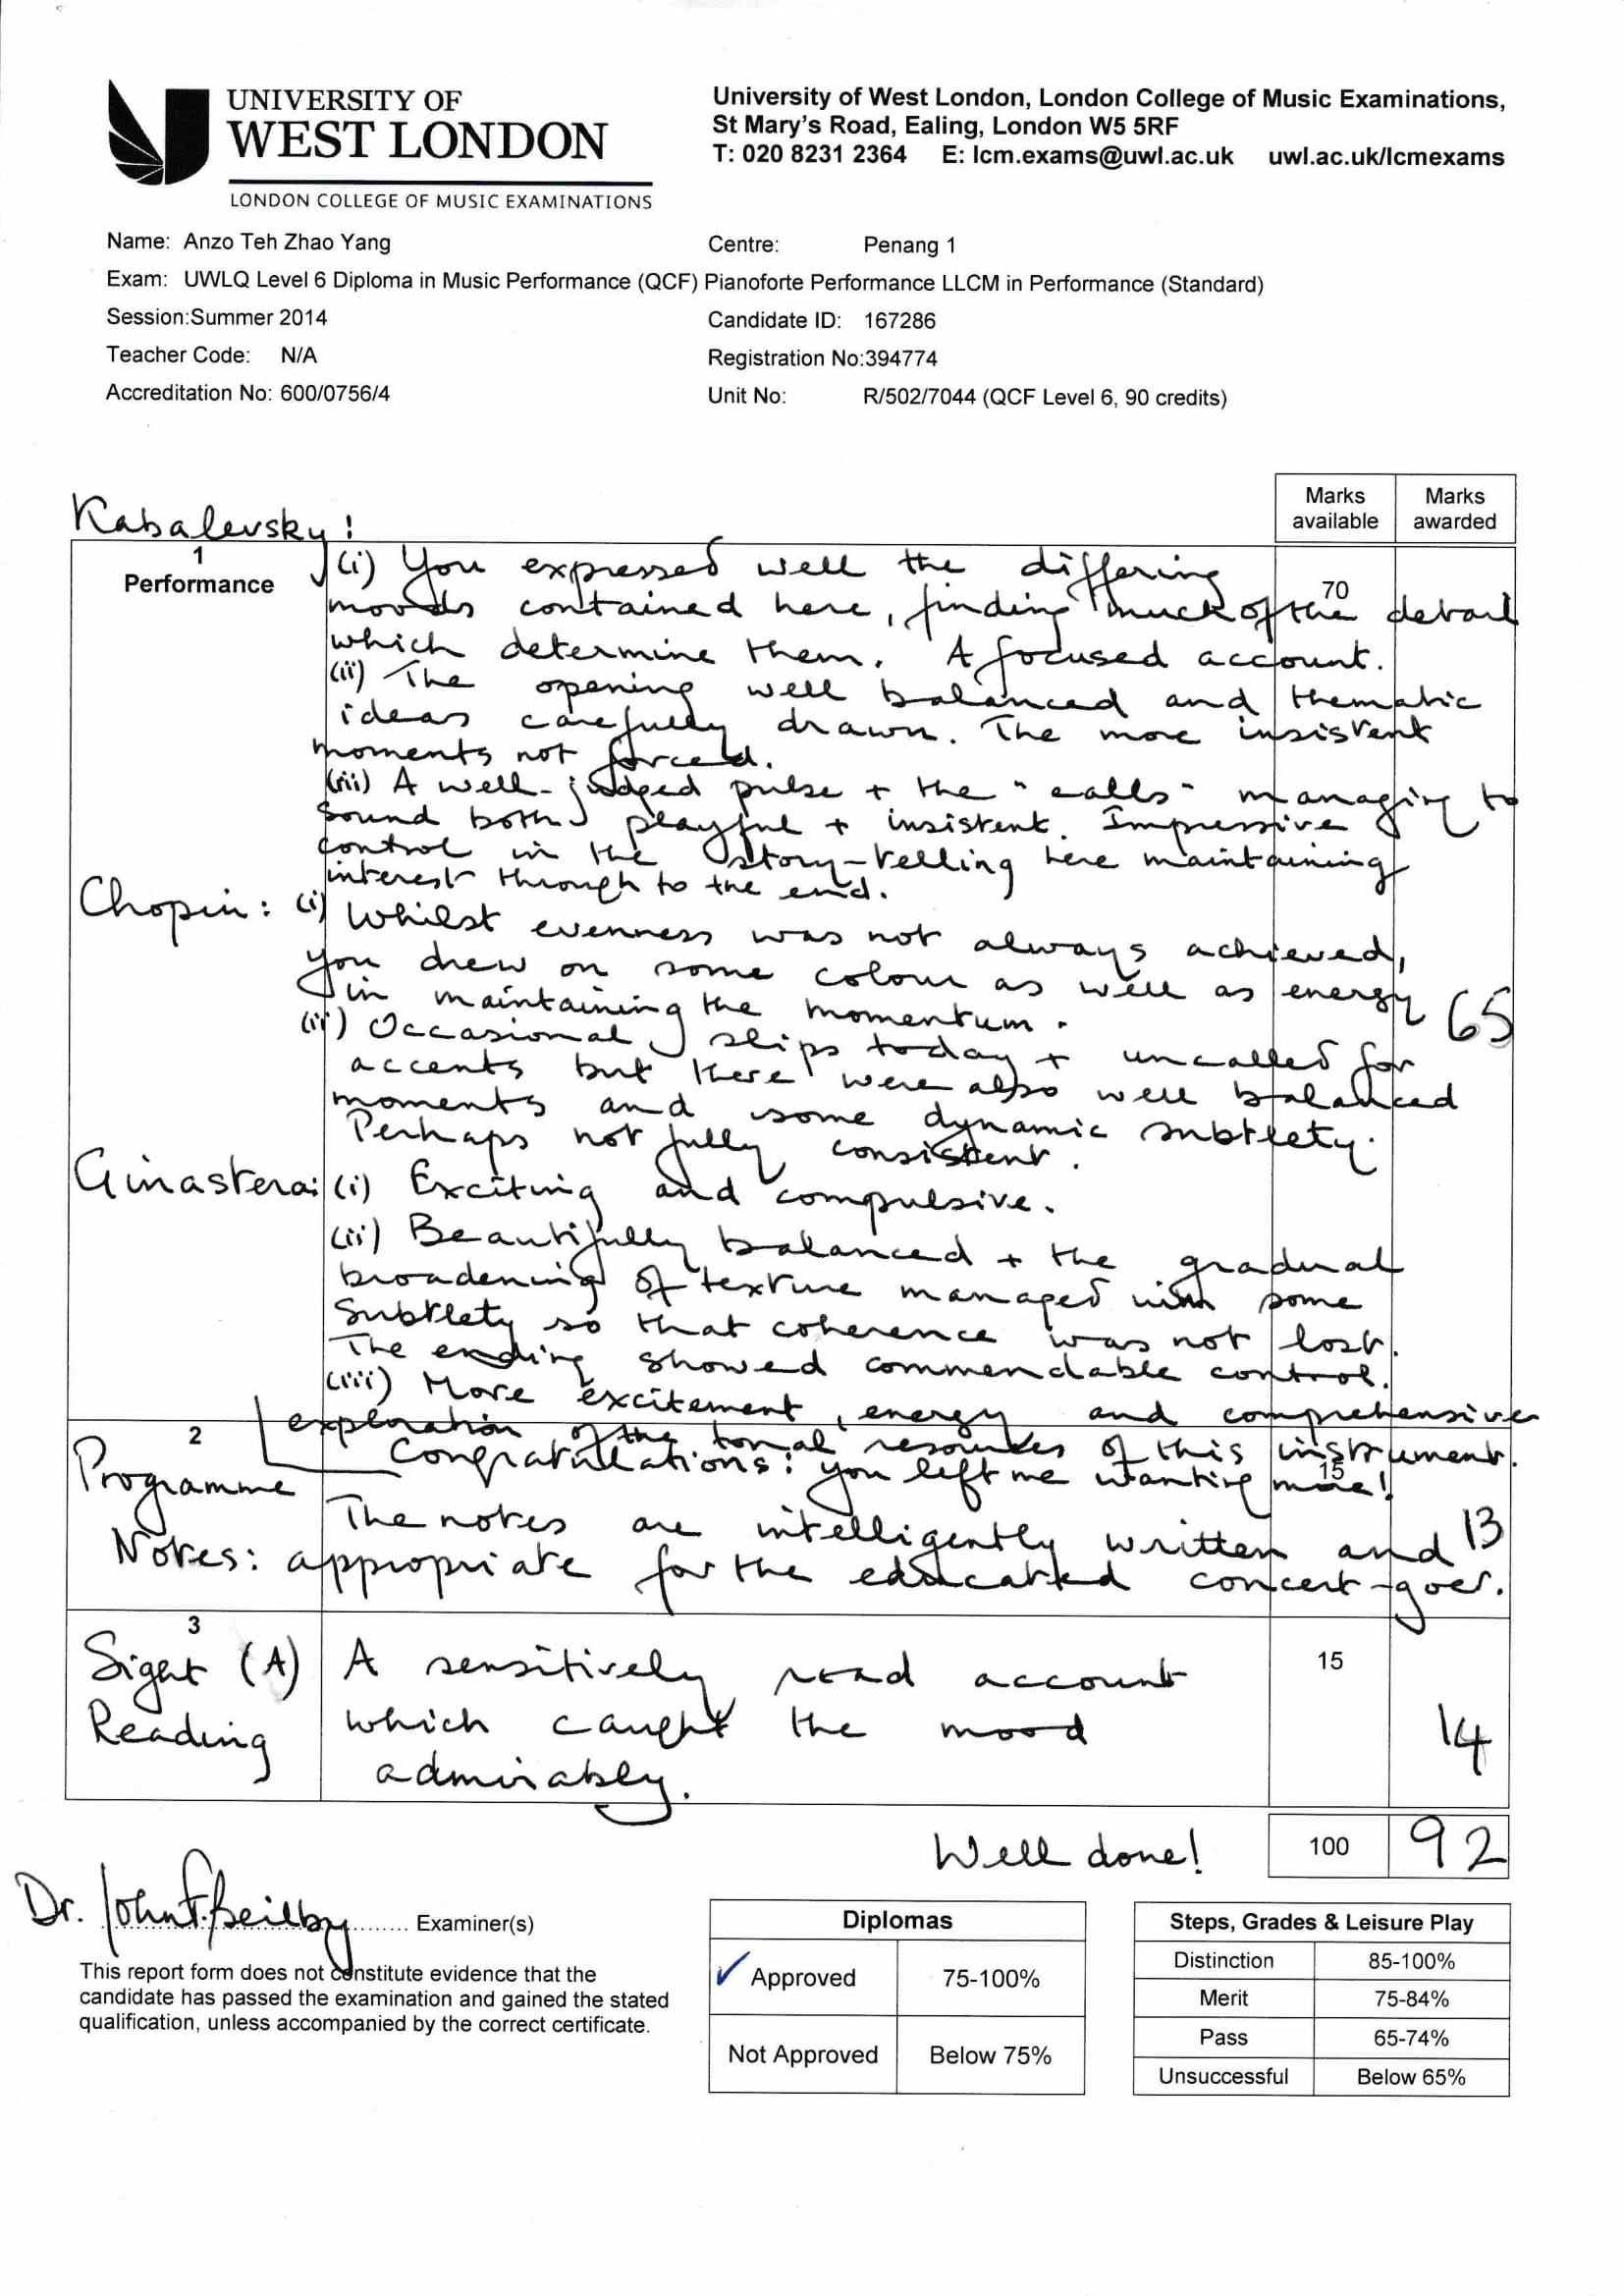 UNIVERSITY OF
WEST LONDON
LONDON COLLEGE OF MUSIC EXAMINATIONS
University of West London, London College of Music Examinations,
St Mary's Road, Ealing, London W5 5RF
T: 020 8231 2364 E: lcm.exams@uwl.ac.uk uwl.ac.uk/lcmexams
Name: Anzo Teh Zhao Yang
Centre: Penang 1
Exam: UWLQ Level 6 Diploma in Music Performance (QCF) Pianoforte Performance LLCM in Performance (Standard)
Session:Summer 2014
Candidate ID: 167286
Teacher Code: N/A
Registration No:394774
Accreditation No: 600/0756/4
Unit No: R/502/7044 (QCF Level 6, 90 credits)
Marks available
Marks awarded
Kabalevsky:
1
Performance
70
(i) You expressed well the differing
moods contained here, finding much of the detail
which determine them. A focused account.
(ii) The opening well balanced and thematic
ideas carefully drawn. The more insistent
moments not forced.
(iii) A well-judged pulse + the "calls" managing to
sound both playful + insistent. Impressive
control in the story-telling here maintaining
interest through to the end.
Chopin: (i) Whilst evenness was not always achieved,
you drew on some colour as well as energy
in maintaining the momentum.
65
(ii) Occasional slips today + uncalled for
accents but there were also well balanced
moments and some dynamic subtlety.
Perhaps not fully consistent.
Ginastera: (i) Exciting and compulsive.
(ii) Beautifully balanced + the gradual
broadening of texture managed with some
subtlety so that coherence was not lost.
The ending showed commendable control.
(iii) More excitement, energy and comprehensive
exploration of the tonal resources of this instrument.
Congratulations: you left me wanting more!
2
Programme
Notes:
15
The notes are intelligently written and
appropriate for the educated concert-goer.
13
3
Sight (A)
Reading
A sensitively read account
which caught the mood
admirably.
15
14
Well done!
100
92
Dr. John F. Beilby
Examiner(s)
This report form does not constitute evidence that the
candidate has passed the examination and gained the stated
qualification, unless accompanied by the correct certificate.
Diplomas
✓ Approved 75-100%
Not Approved Below 75%
Steps, Grades & Leisure Play
Distinction 85-100%
Merit 75-84%
Pass 65-74%
Unsuccessful Below 65%